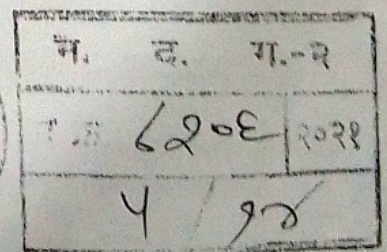 न. द. ग.-२
८२०६ २०२१
५ / १४